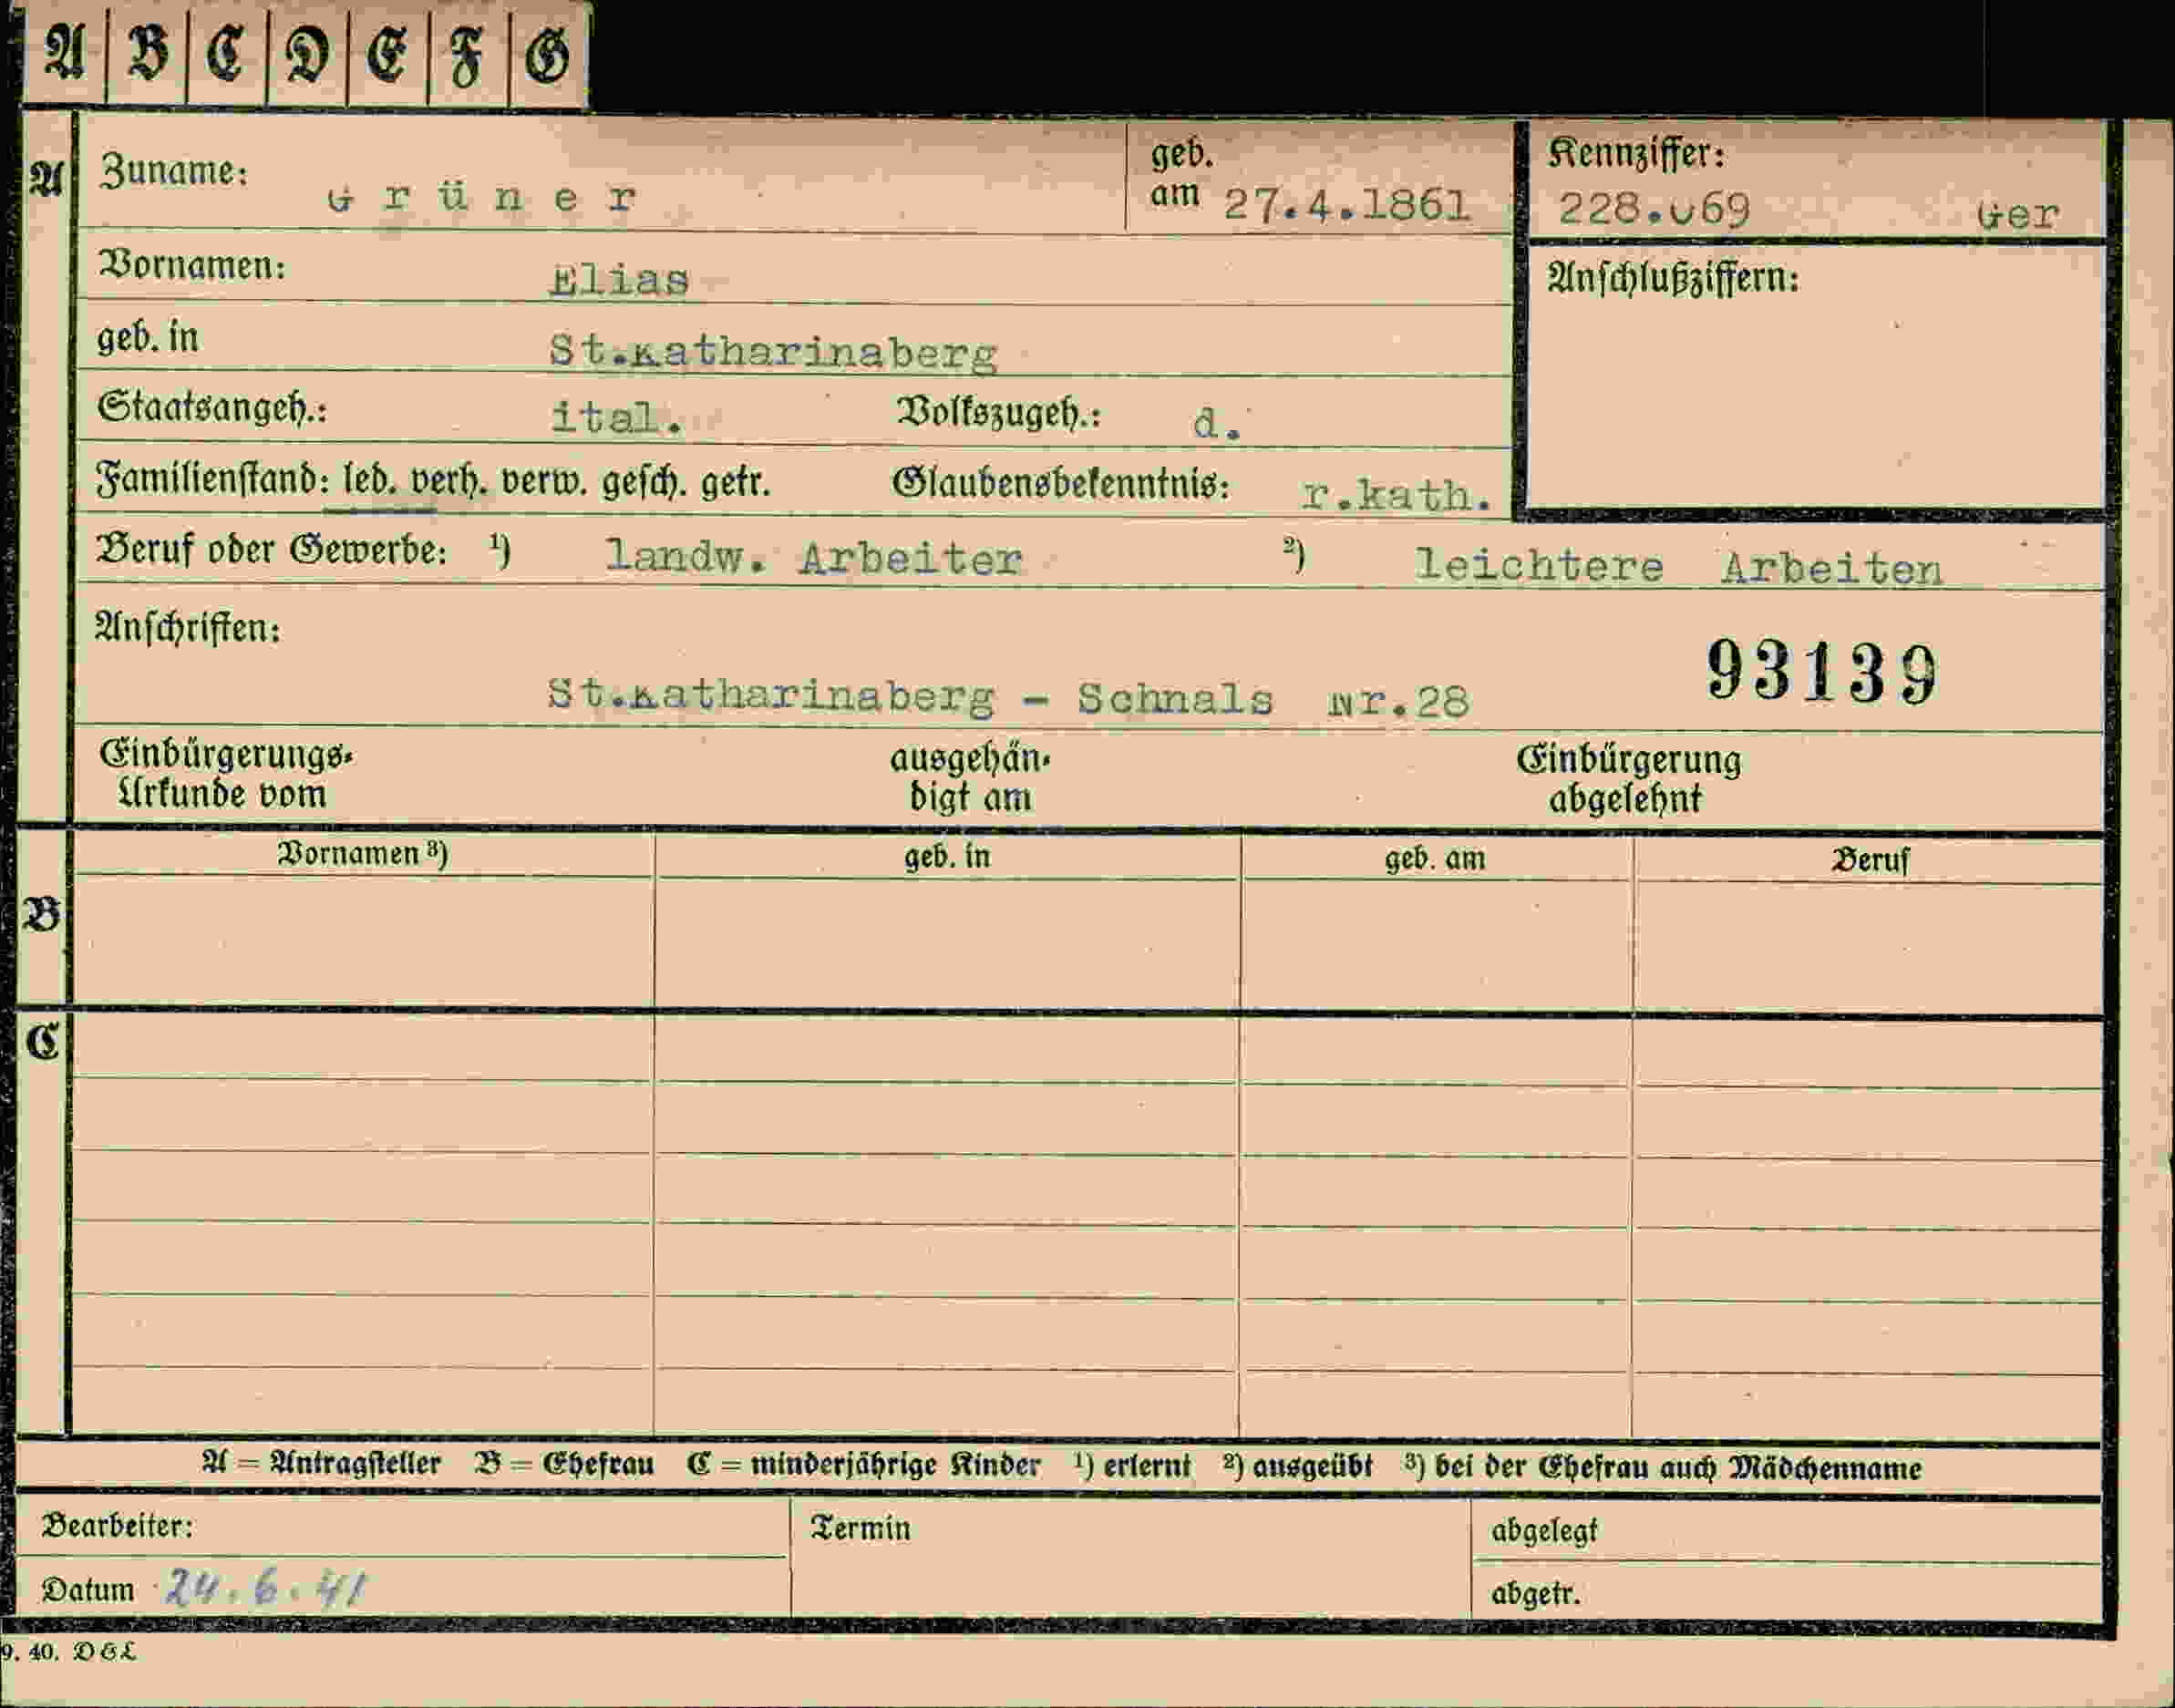 A B C D E F G
A
Zuname: Grüner
geb. am 27.4.1861
Kennziffer:
228.069 Ger
Vornamen: Elias
Anschlußziffern:
geb. in St.Katharinaberg
Staatsangeh.: ital. Volkszugeh.: d.
Familienstand: led. verh. verw. gesch. getr. Glaubensbekenntnis: r.kath.
Beruf oder Gewerbe: ¹) landw. Arbeiter ²) leichtere Arbeiten
Anschriften:
93139
St.Katharinaberg - Schnals Nr.28
Einbürgerungs- ausgehän- Einbürgerung
Urkunde vom digt am abgelehnt
Vornamen ³) geb. in geb. am Beruf
B
C
A = Antragsteller B = Ehefrau C = minderjährige Kinder ¹) erlernt ²) ausgeübt ³) bei der Ehefrau auch Mädchenname
Bearbeiter: Termin abgelegt
Datum 24.6.41 abgetr.
9. 40. DGL